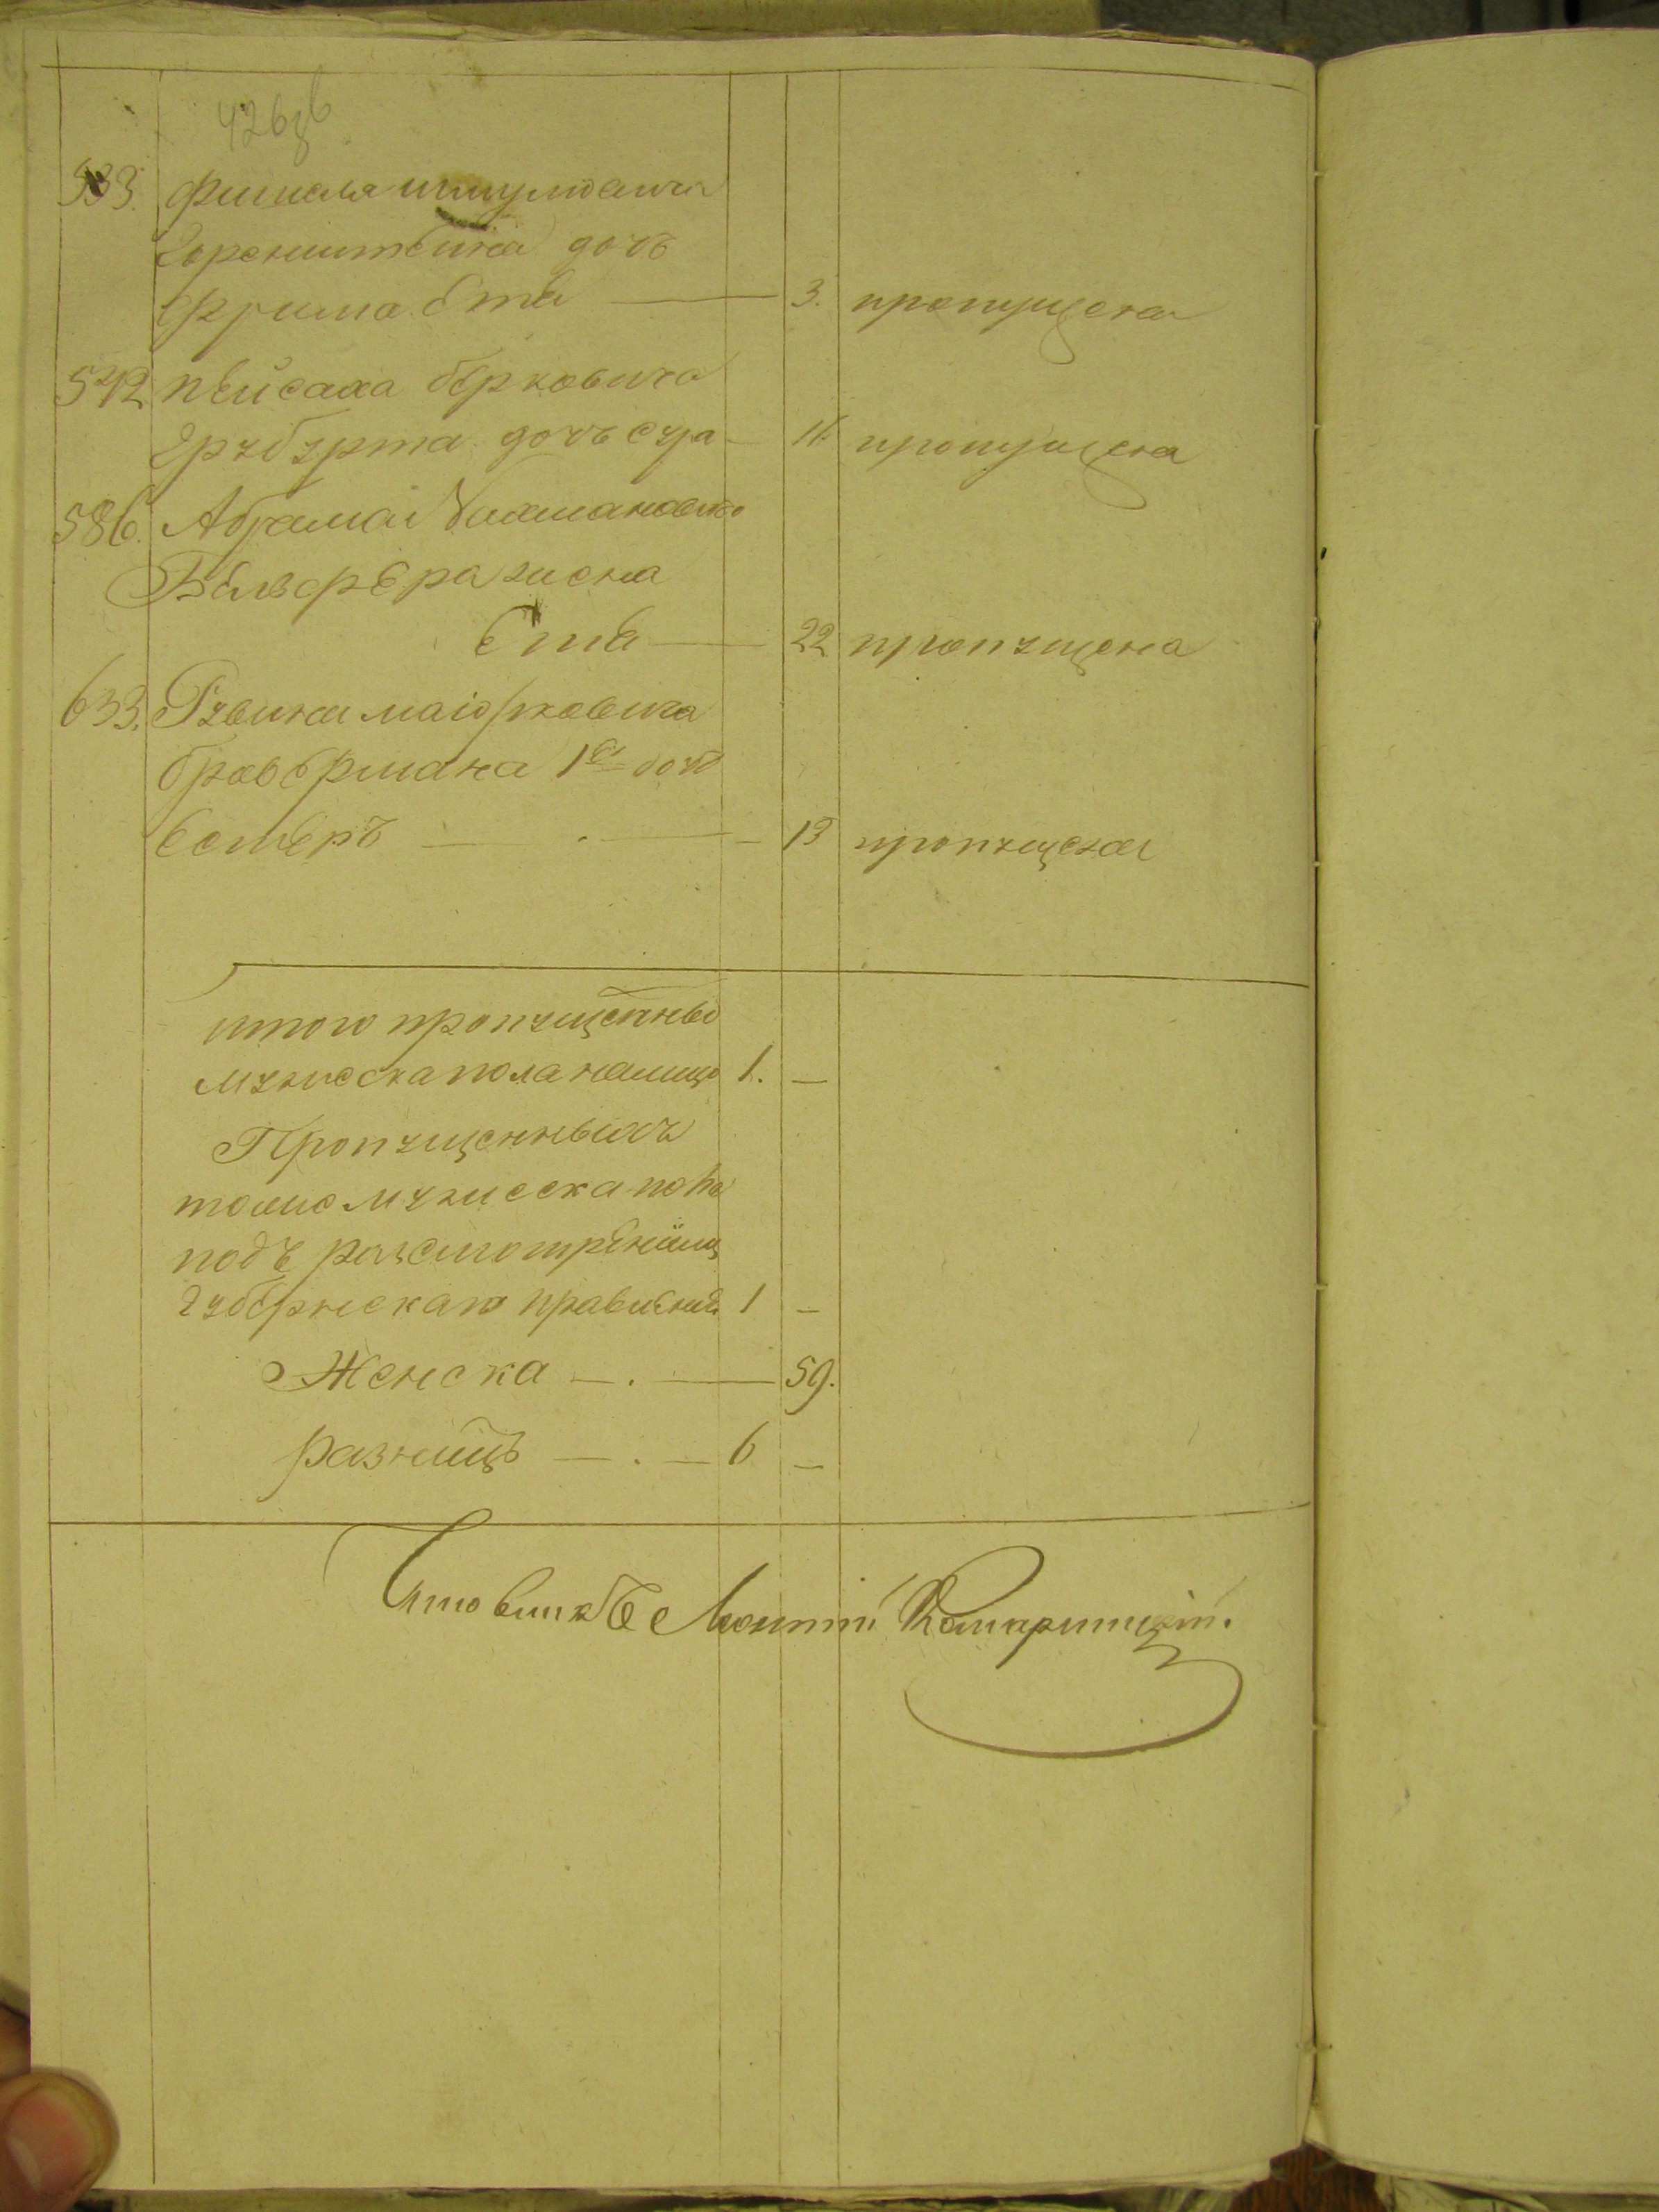 426
533. Фишеля Шмулювича
Горенштейна дочь
Фрима Ета — 3. пропущена
542 Пейсаха Берковича
Грубурта дочь Сура — 11. пропущена
586. Абрама
Бельфера жена
Ета — 22 пропущена
633. Рувина Маіорковича
Бравермана 1ая дочь
Естеръ — 13 пропущена
итого пропущенныхъ
мужеска пола налицо 1. —
Пропущенныхъ
тоже мужеска пола
подъ разсмотреніемъ
Губернскаго правленія 1 —
Женска — . — 59.
разницъ — . — 6 —
Комарницкій.